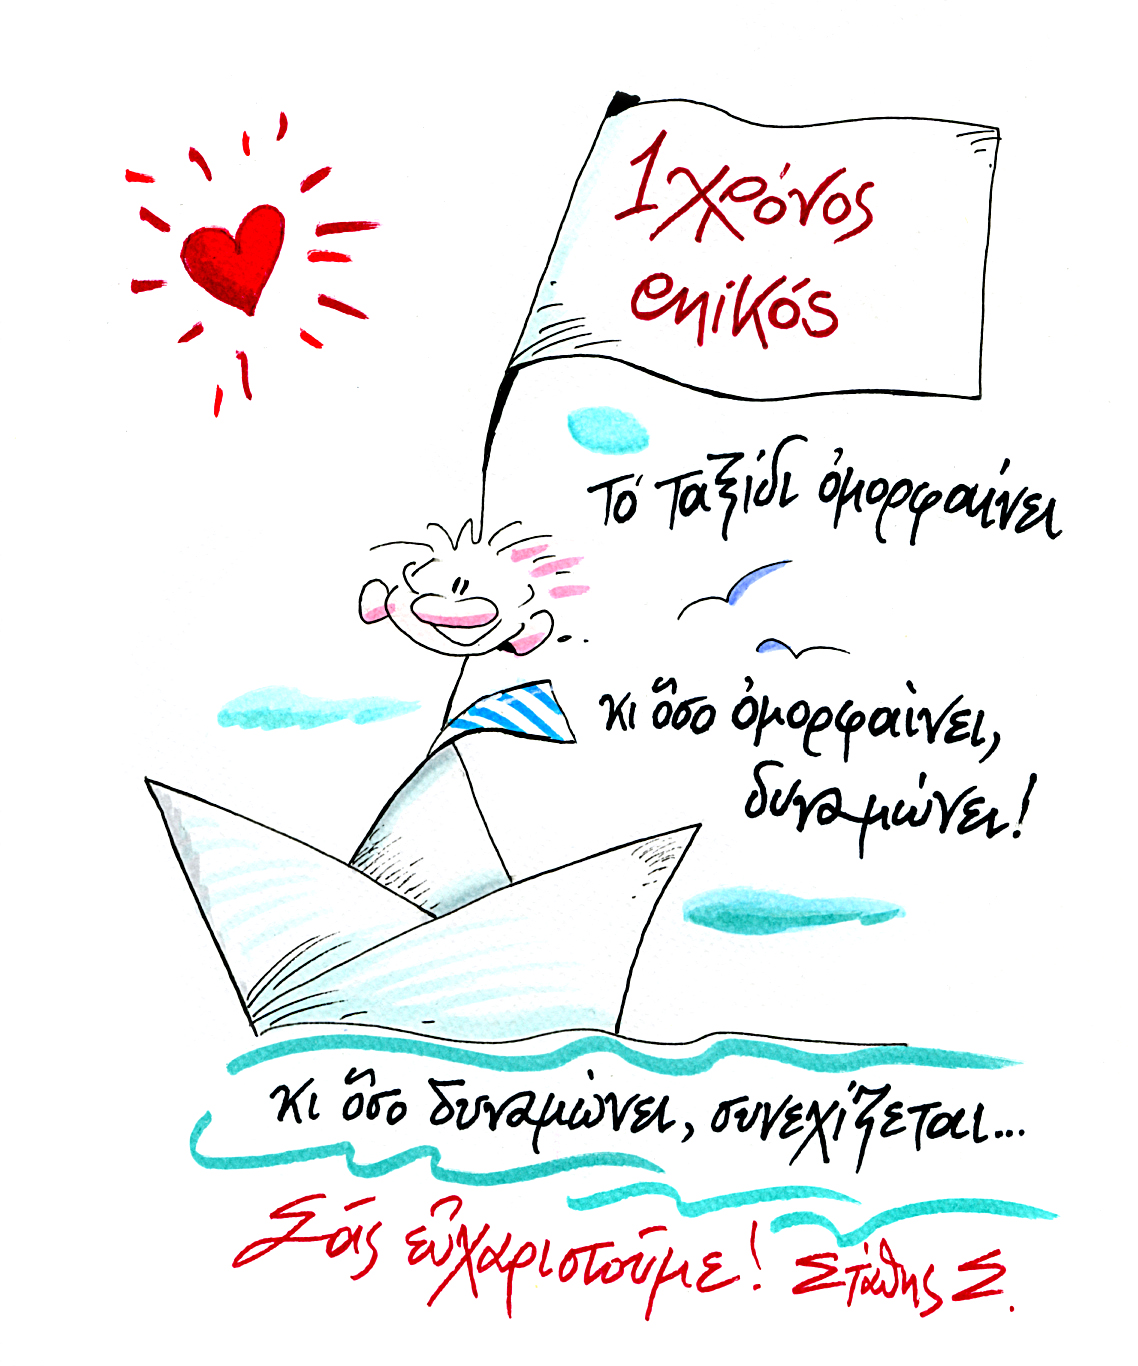 1 χρόνος
επικός
Τό ταξίδι ὀμορφαίνει
κι ὅσο ὀμορφαίνει,
δυναμώνει!
κι ὅσο δυναμώνει, συνεχίζεται...
Σάς εὐχαριστούμε! Στάθης Σ.